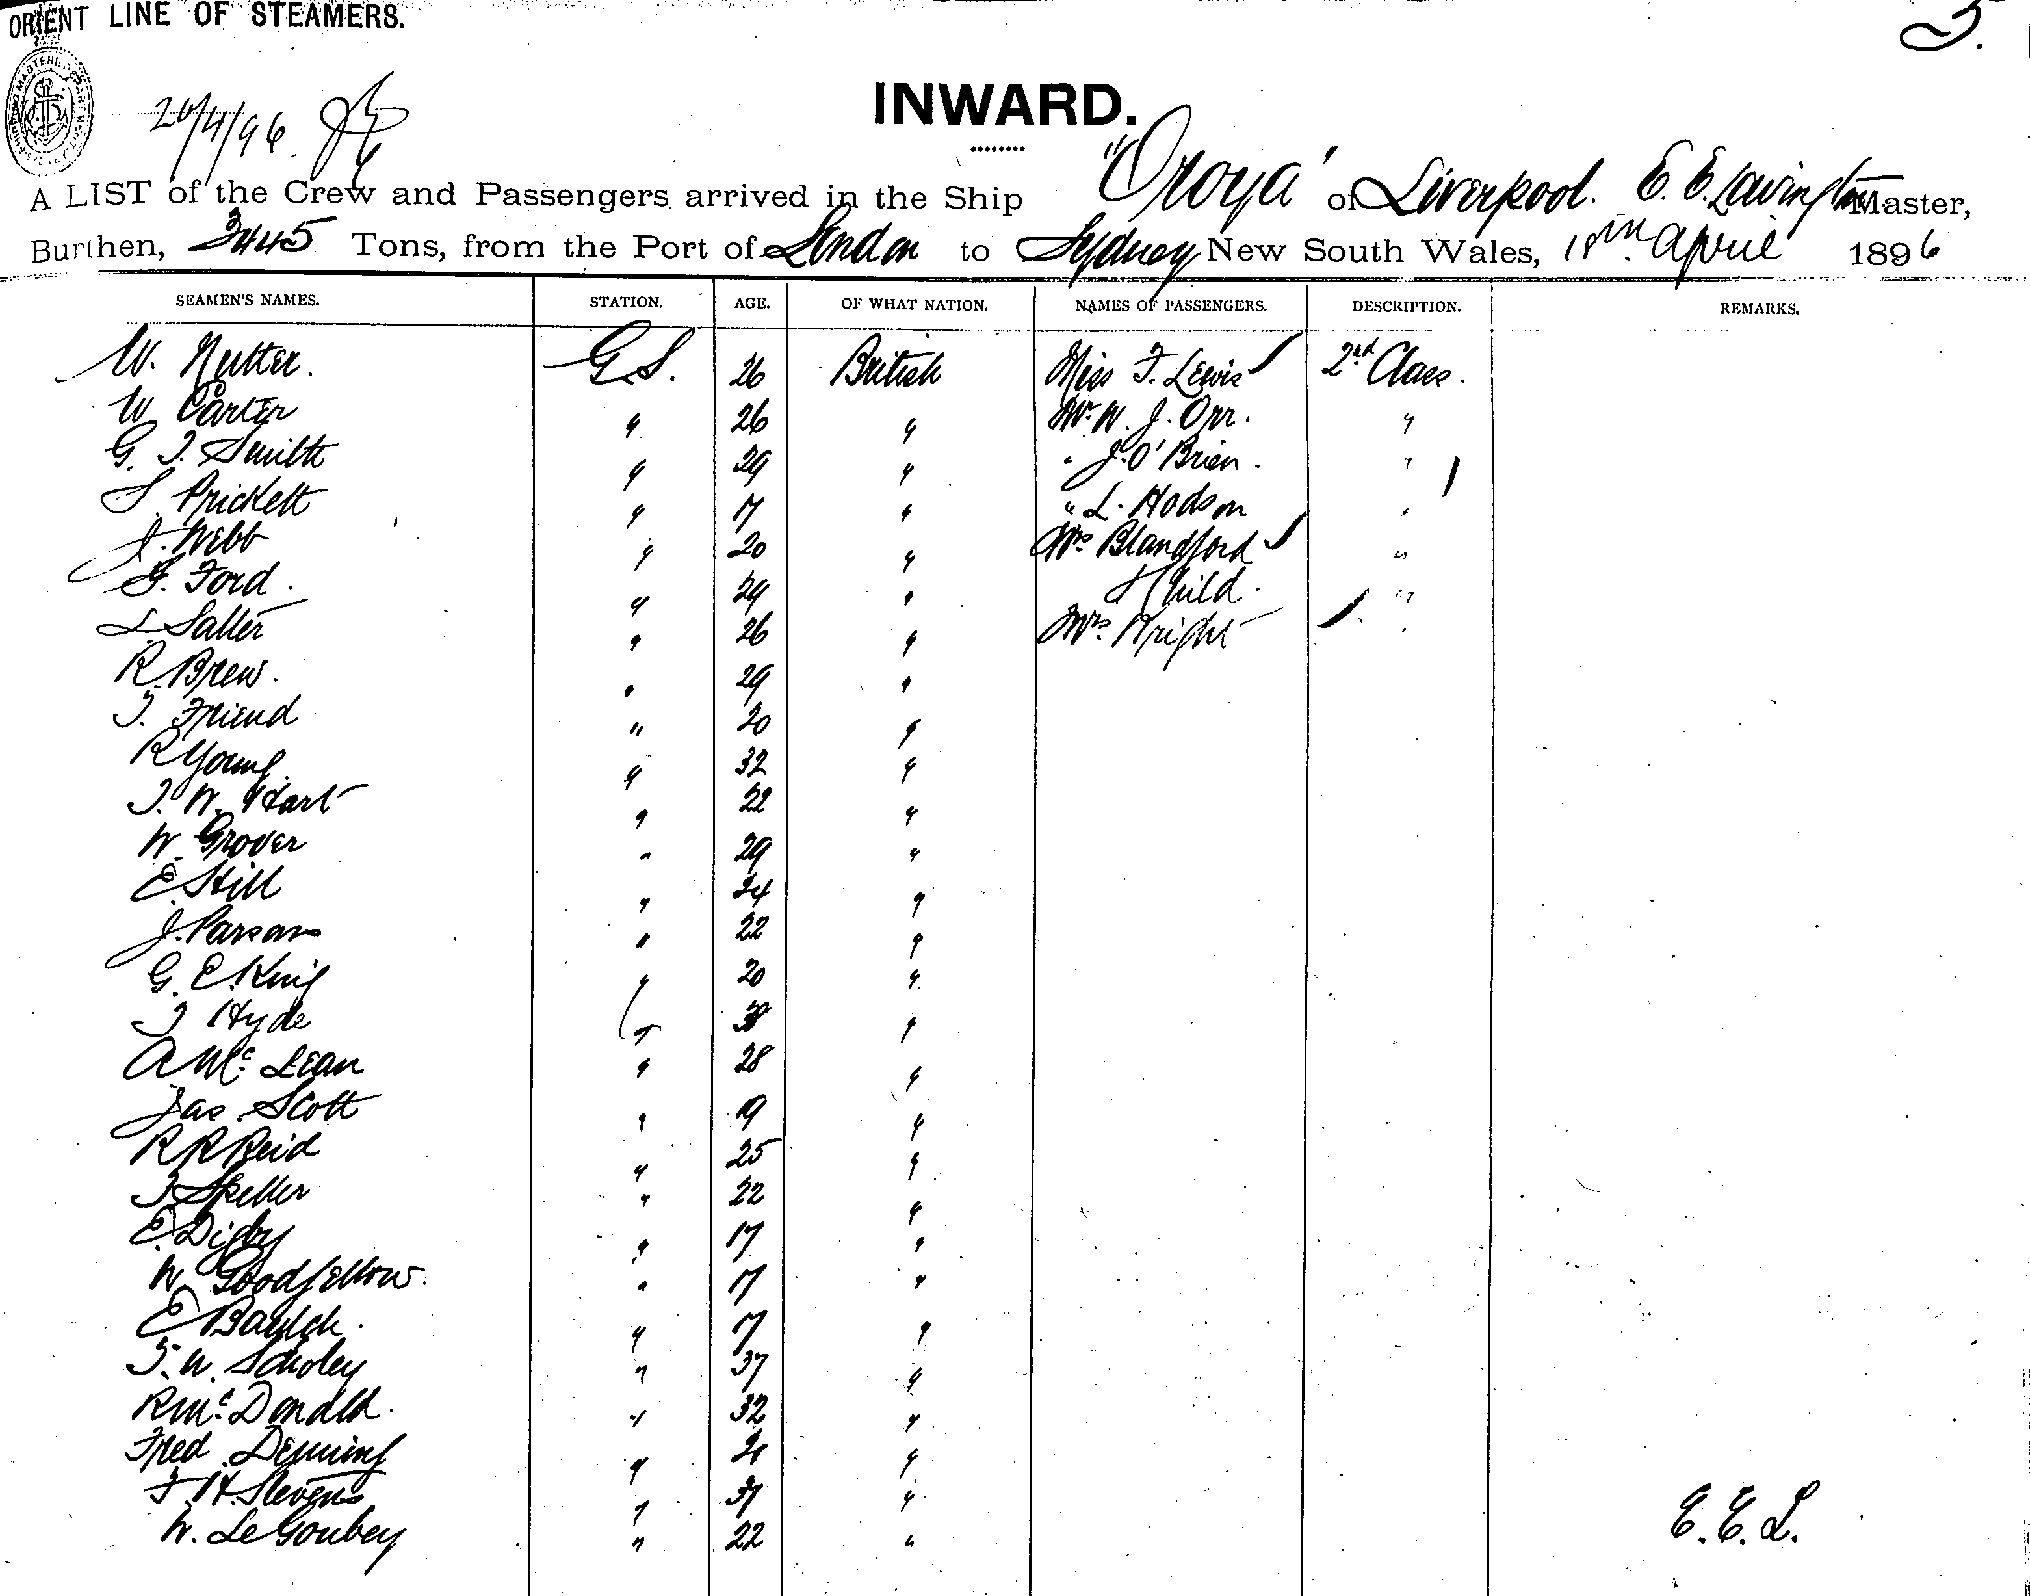 ORIENT LINE OF STEAMERS.
5.
20/4/96
INWARD.
A LIST of the Crew and Passengers arrived in the Ship "Oroya" of Liverpool. E. E. Lavington Master,
Burthen, 3445 Tons, from the Port of London to Sydney New South Wales, 18th April 1896
SEAMEN'S NAMES. STATION. AGE. OF WHAT NATION. NAMES OF PASSENGERS. DESCRIPTION. REMARKS.
W. Nutter. G.S. 26 British Miss F. Lewis 2nd Class.
W Carter " 26 " Mr. W. J. Orr. "
G. T. Smith " 29 " " J. O'Brien. "
S Prickett " 17 " " L. Hodson "
J. Webb " 20 " Mrs Blandford "
G. Ford. " 29 " & Child. "
L Salter " 26 " Mrs. Wright "
R. Brew. " 29 "
T. Friend " 20 "
R Young " 32 "
T. W. Hart " 22 "
W. Grover " 29 "
E. Hill " 24 "
J. Parsons " 22 "
G. E. King " 20 "
T Hyde " "
A McLean " 28 "
Jas. Scott " 19 "
R R Reid " 25 "
T Speller " 22 "
E. Digby " 17 "
W. Goodfellow. " 17 "
E Baulch. " 17 "
T. W. Scholey " 37 "
R McDonald. " 32 "
Fred Deming " 21 "
F. H. Stevens " 37 "
W. Le Goubey " 22 "
E. E. L.